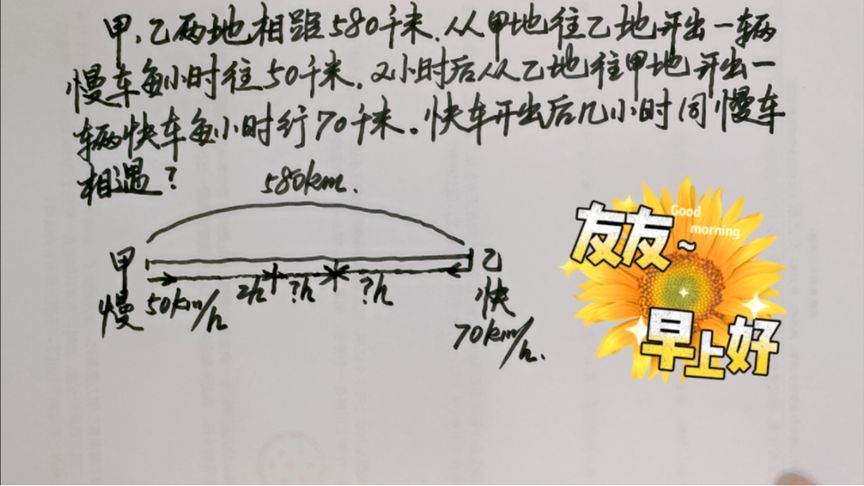 甲、乙两地相距580千米.从甲地往乙地开出一辆
慢车每小时往50千米.2小时后从乙地往甲地开出一
辆快车每小时行70千米。快车开出后几小时同慢车
相遇?
580km.
甲 乙
慢 50km/h 2h ?h ?h 快
70km/h.
Good
morning
友友~
早上好